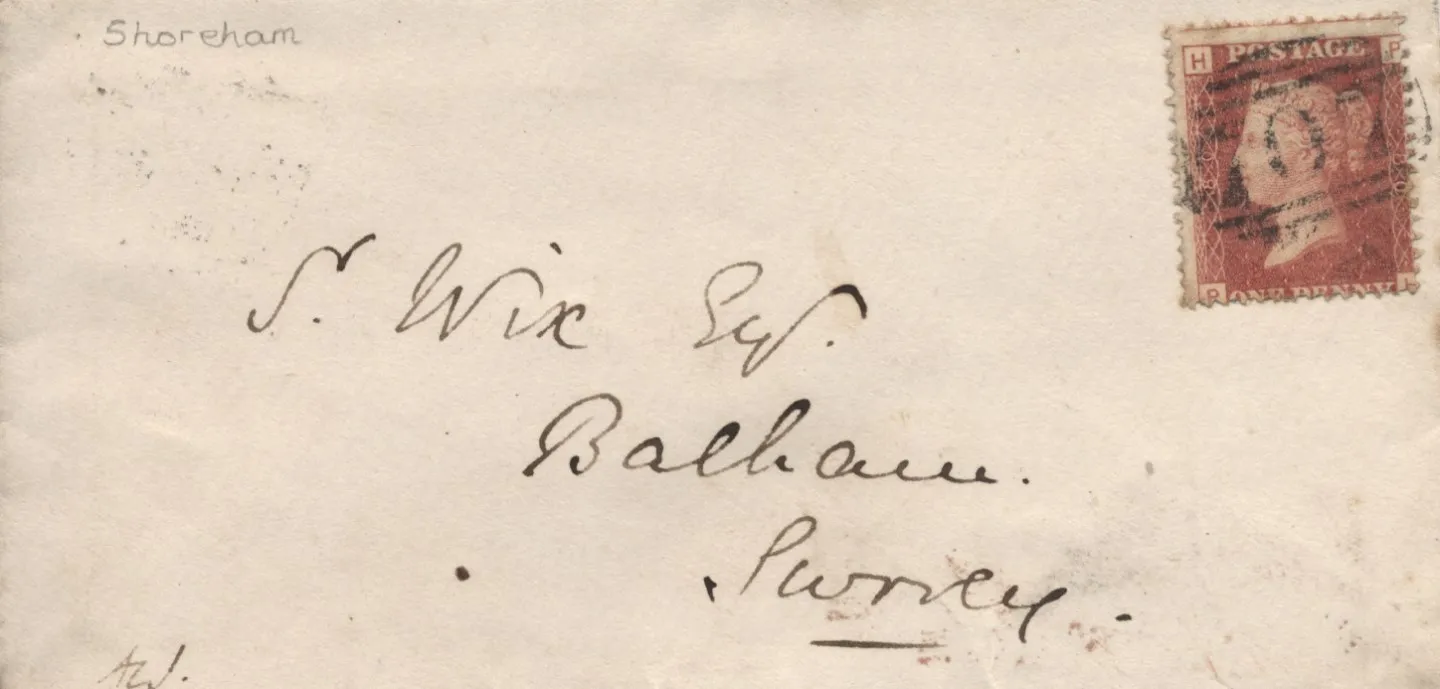 Shoreham
H POSTAGE P
S. Wix Esq.
ONE PENNY
Balham.
Surrey.